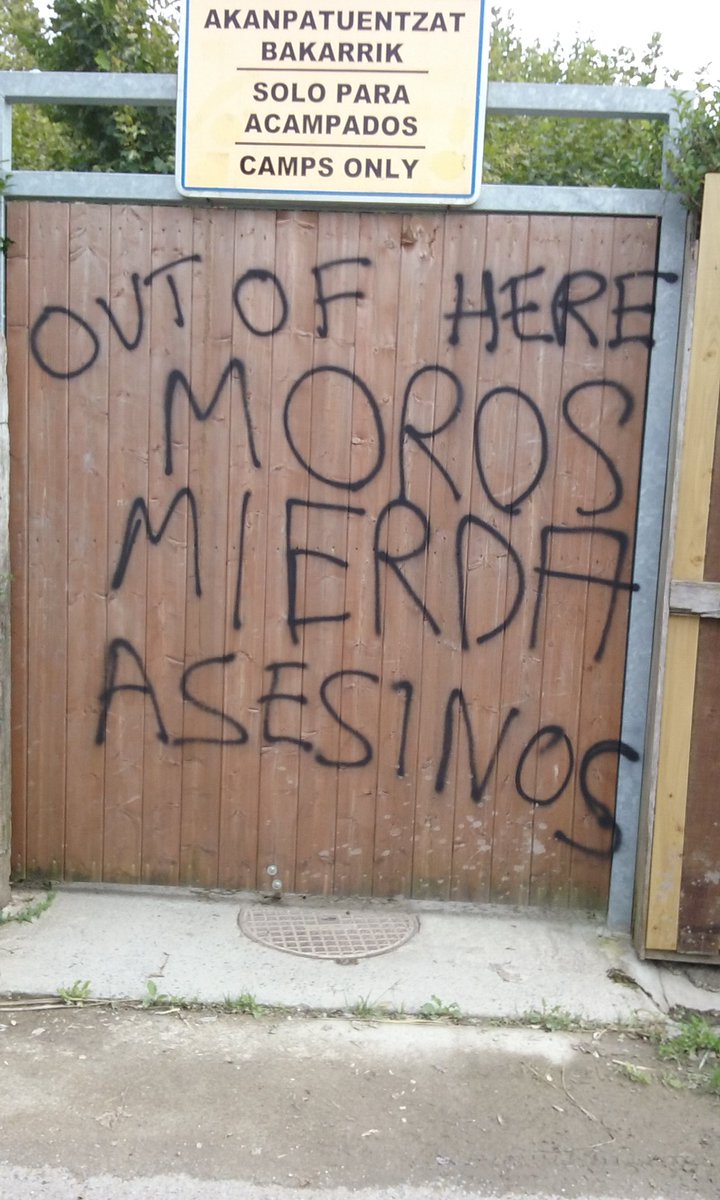 AKANPATUENTZAT
BAKARRIK
SOLO PARA
ACAMPADOS
CAMPS ONLY
OUT OF HERE
MOROS
MIERDA
ASESINOS